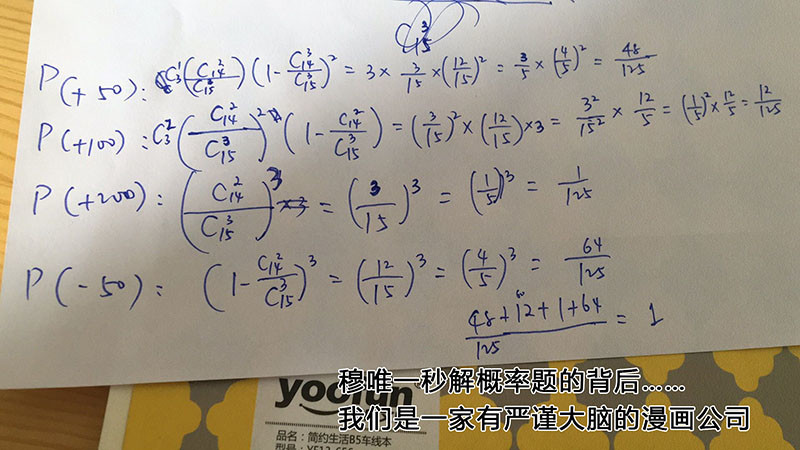 C₁₅³
P(+50): C₃¹(C₁₄²/C₁₅³)(1-C₁₄³/C₁₅³)² = 3×3/15×(12/15)² = 3/5×(4/5)² = 48/125
P(+100): C₃²(C₁₄²/C₁₅³)²(1-C₁₄²/C₁₅³) = (3/15)²×(12/15)×3 = 3²/15²×12/5 = (1/5)²×12/5 = 12/125
P(+200): (C₁₄²/C₁₅³)³ = (3/15)³ = (1/5)³ = 1/125
P(-50): (1-C₁₄²/C₁₅³)³ = (12/15)³ = (4/5)³ = 64/125
(48+12+1+64)/125 = 1
穆唯一秒解概率题的背后……
我们是一家有严谨大脑的漫画公司
品名:简约生活B5车线本